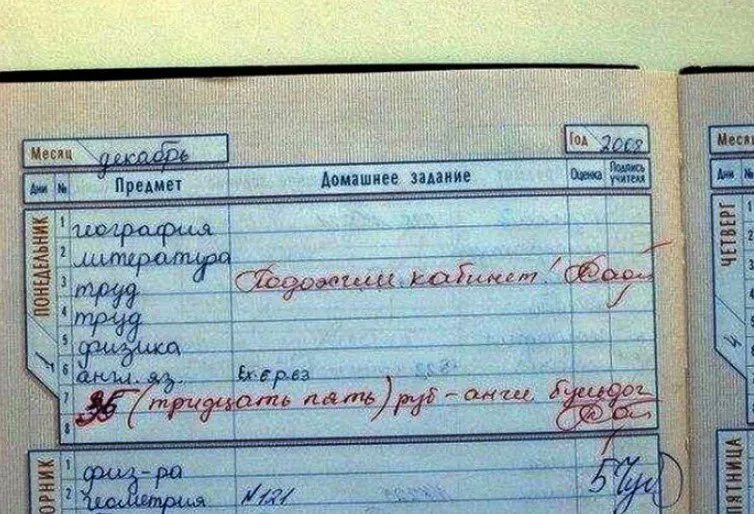 Месяц декабрь Год 2008
Дни № Предмет Домашнее задание Оценка Подпись учителя
ПОНЕДЕЛЬНИК
1 география
2 литература
3 труд Подожгли кабинет!
4 труд
5 физика
6 англ. яз. Ex. 6 p. 63
7 35 (тридцать пять) руб - англ бульдог
8
ОРНИК
1 физ-ра
2 геометрия N 121 5
Меся
Дни №
ЧЕТВЕРГ
4
ПЯТНИЦА